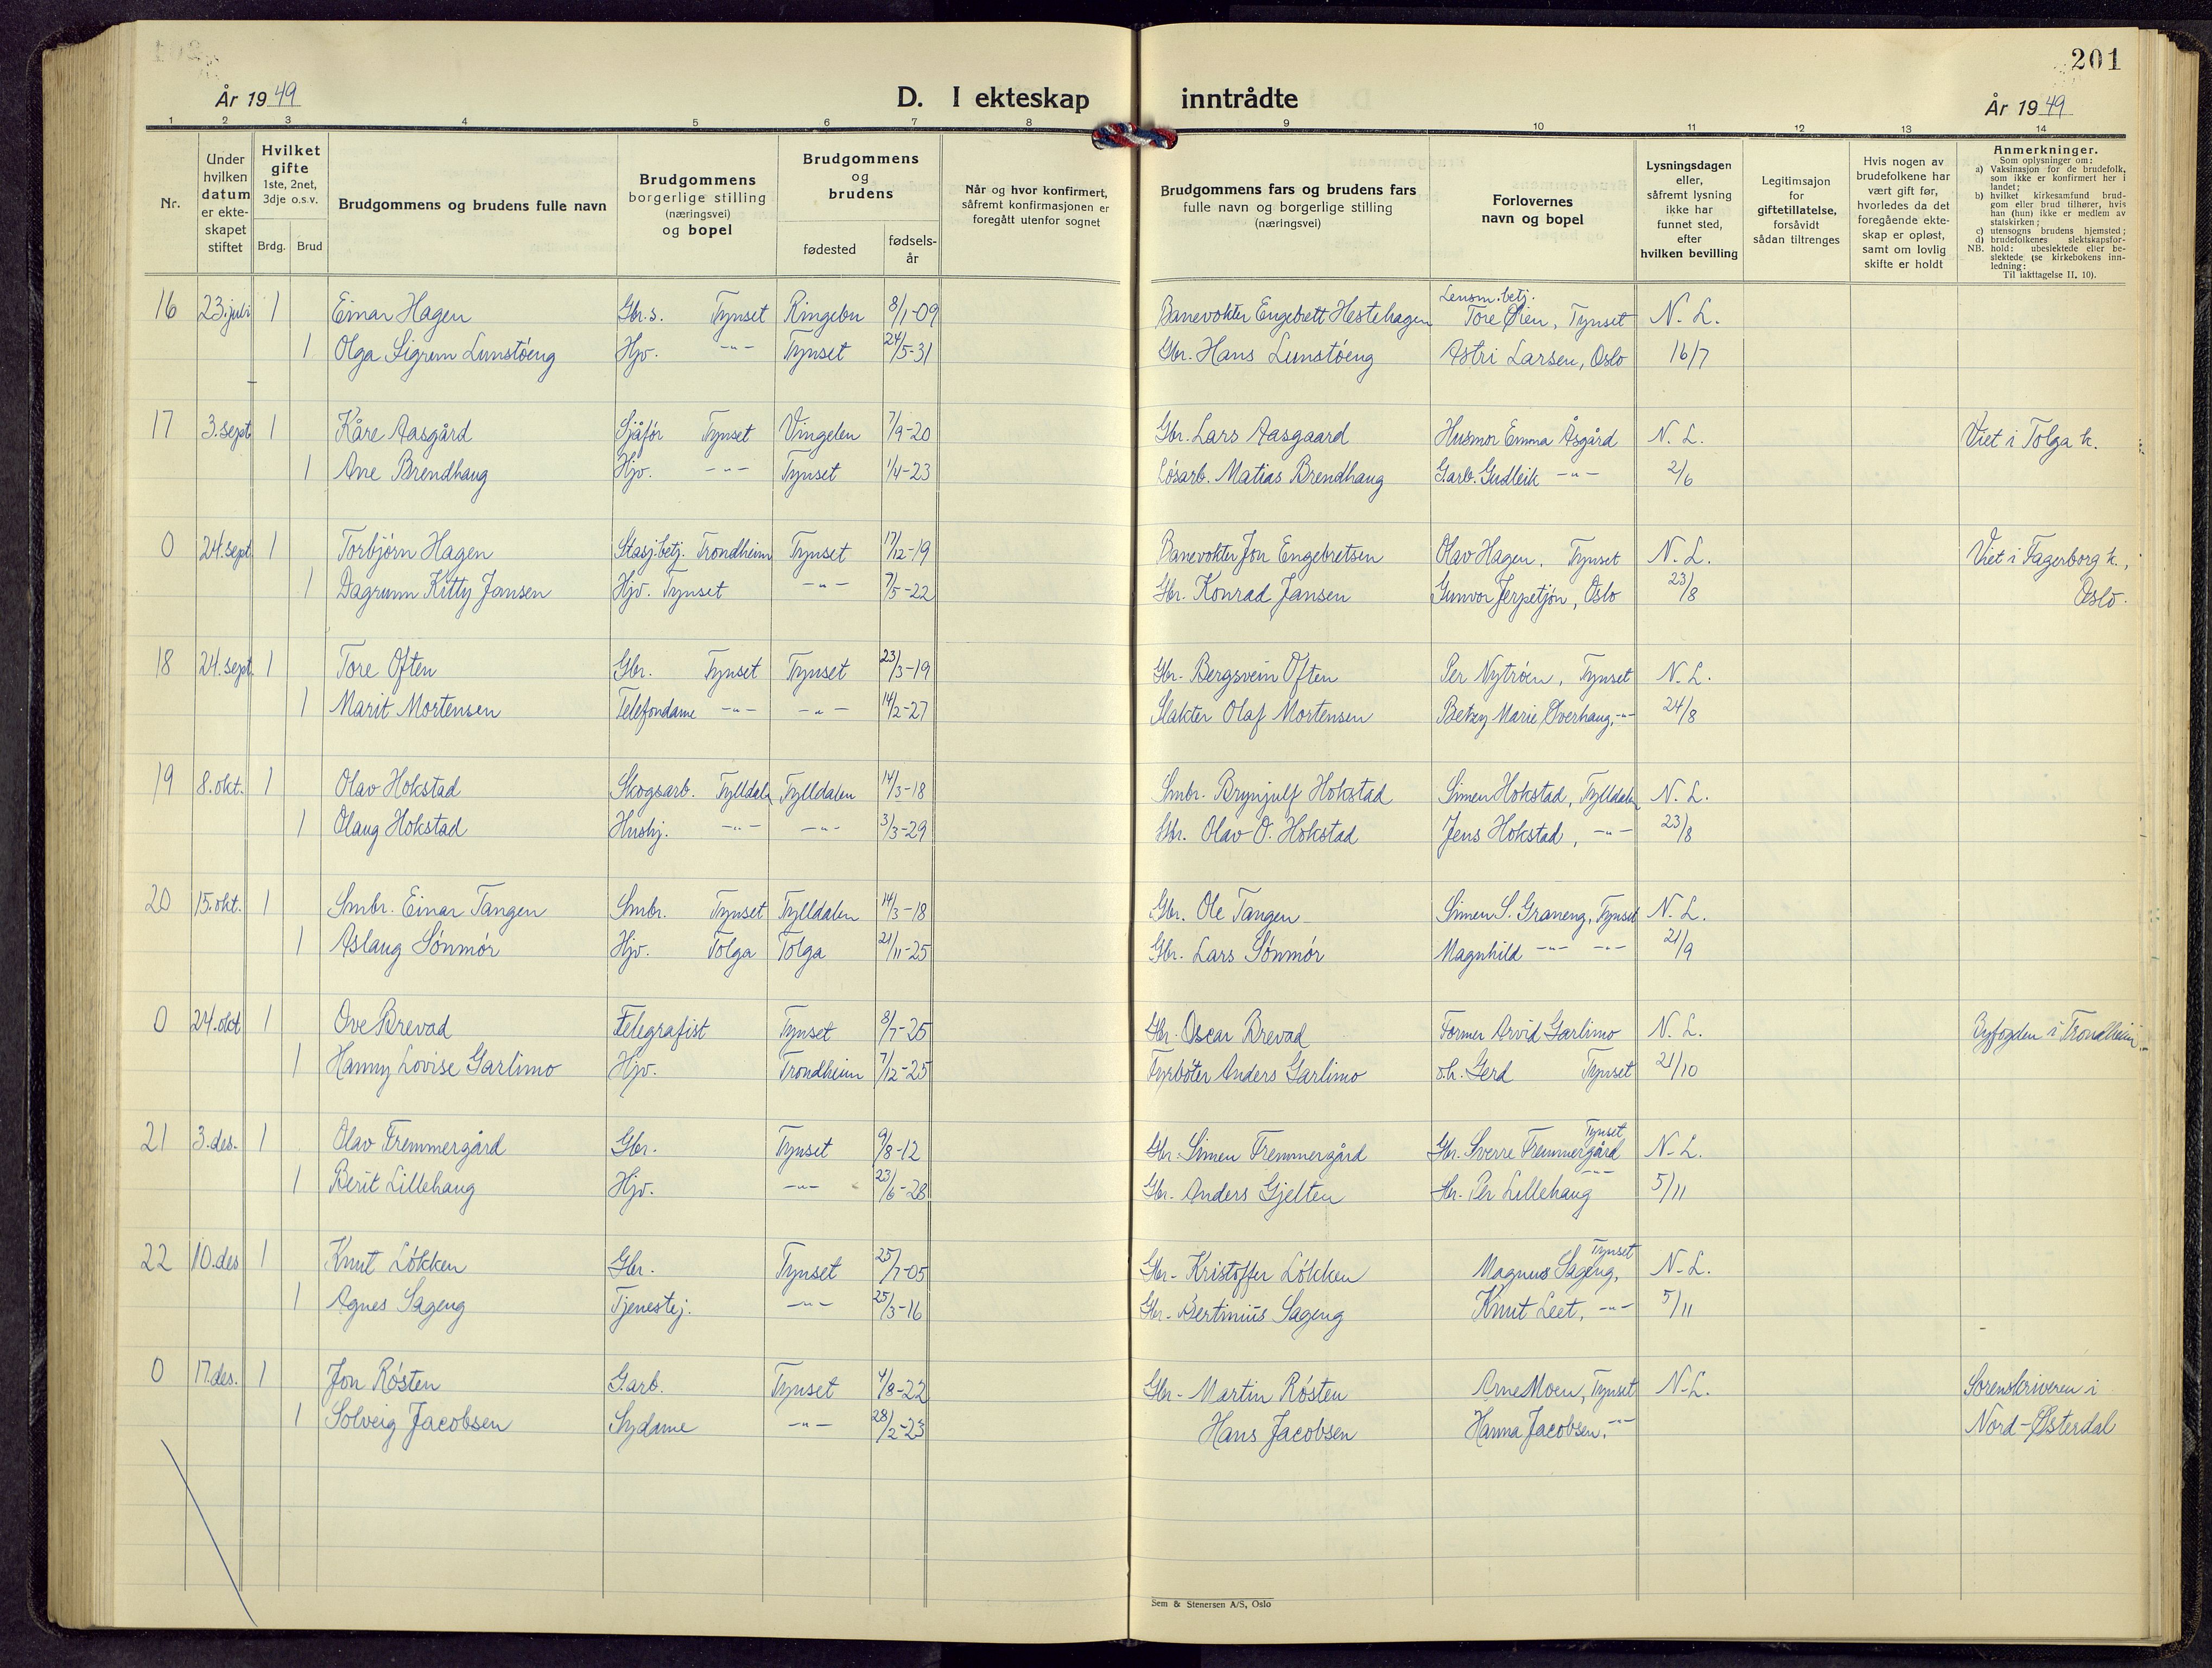 201
År 1949
D. I ekteskap inntrådte
År 1949
1 2 3 4 5 6 7 8 9 10 11 12 13 14
Nr.
Under hvilken datum er ekte-skapet stiftet
Hvilket gifte 1ste, 2net, 3dje o.s.v.
Brdg. Brud
Brudgommens og brudens fulle navn
Brudgommens borgerlige stilling (næringsvei) og bopel
Brudgommens og brudens
fødested
fødsels-år
Når og hvor konfirmert, såfremt konfirmasjonen er foregått utenfor sognet
Brudgommens fars og brudens fars fulle navn og borgerlige stilling (næringsvei)
Forlovernes navn og bopel
Lysningsdagen eller, såfremt lysning ikke har funnet sted, efter hvilken bevilling
Legitimsajon for giftetillatelse, forsåvidt sådan tiltrenges
Hvis nogen av brudefolkene har vært gift før, hvorledes da det foregående ekte-skap er opløst, samt om lovlig skifte er holdt
Anmerkninger.
Som oplysninger om:
a) Vaksinasjon for de brudefolk, som ikke er konfirmert her i landet;
b) hvilket kirkesamfund brud-gom eller brud tilhører, hvis han (hun) ikke er medlem av statskirken;
c) utensogns brudens hjemsted;
d) brudefolkenes slektskapsfor-
NB. hold: ubeslektede eller be-slektede (se kirkebokens inn-ledning:
Til iakttagelse II, 10).
Lensm.betj.
16 23.juli 1 Einar Hagen Gbr.s. Tynset Ringebu 8/1-09 Banevokter Engebrett Hestehagen Tore Øien, Tynset N. L.
1 Olga Sigrun Lunstøeng Hjv. -"- Tynset 24/5-31 Gbr. Hans Lunstøeng Astri Larsen, Oslo 16/7
17 3.sept 1 Kåre Aasgård Sjåfør Tynset Vingelen 7/9-20 Gbr. Lars Aasgaard Husmor Emma Åsgård N. L. Viet i Tolga k.
1 Ane Brendhaug Hjv. -"- Tynset 1/4-23 Løsarb. Matias Brendhaug G.arb. Gudleik -"- 2/6
0 24.sept 1 Torbjørn Hagen Stasj.betj. Trondheim Tynset 17/12-19 Banevokter Jon Engebretsen Olav Hagen, Tynset N. L. Viet i Fagerborg k.,
1 Dagrunn Kitty Jansen Hjv. Tynset -"- 7/5-22 Gbr. Konrad Jansen Gunvor Jerpetjøn, Oslo 23/8 Oslo.
18 24.sept. 1 Tore Often Gbr. Tynset Tynset 23/3-19 Gbr. Bergsvein Often Per Nytrøen, Tynset N. L.
1 Marit Mortensen Telefondame -"- -"- 14/2-27 Slakter Olaf Mortensen Betzy Marie Øverhaug, -"- 24/8
19 8.okt. 1 Olav Hokstad Skogsarb. Tylldalen Tylldalen 14/3-18 Smbr. Brynjulf Hokstad Simen Hokstad, Tylldalen N. L.
1 Olaug Hokstad Hushj. -"- -"- 3/3-29 Gbr. Olav O. Hokstad Jens Hokstad, -"- 23/8
20 15.okt. 1 Smbr. Einar Tangen Smbr. Tynset Tylldalen 14/3-18 Gbr. Ole Tangen Simen S. Graneng, Tynset N. L.
1 Aslaug Sønmør Hjv. Tolga Tolga 21/11-25 Gbr. Lars Sønmør Magnhild -"- -"- 21/9
0 24.okt 1 Ove Brevad Telegrafist Tynset 8/7-25 Gbr. Oscar Brevad Former Arvid Garlimo N. L. Byfogden i Trondheim.
1 Hanny Lovise Garlimo Hjv. Trondheim 7/12-25 Fyrbøter Anders Garlimo o.h. Gerd Tynset 21/10
Tynset
21 3.des. 1 Olav Fremmergård Gbr. Tynset 9/8-12 Gbr. Simen Fremmergård Gbr. Sverre Fremmergård N. L.
1 Berit Lillehaug Hjv. -"- 23/6-28 Gbr. Anders Gjelten Gbr. Per Lillehaug -"- 5/11
Tynset
22 10.des 1 Knut Løkken Gbr. Tynset 25/7-05 Gbr. Kristoffer Løkken Magnus Sageng, N. L.
1 Agnes Sageng Tjenestej. -"- 25/3-16 Gbr. Bertinius Sageng Knut Leet, -"- 5/11
0 17.des. 1 Jon Røsten G.arb. Tynset 4/8-22 Gbr. Martin Røsten Arne Moen, Tynset N. L. Sorenskriveren i
1 Solveig Jacobsen Sydame -"- 28/2-23 Hans Jacobsen Hanna Jacobsen, -"- Nord-Østerdal
Sem & Stenersen A/S, Oslo